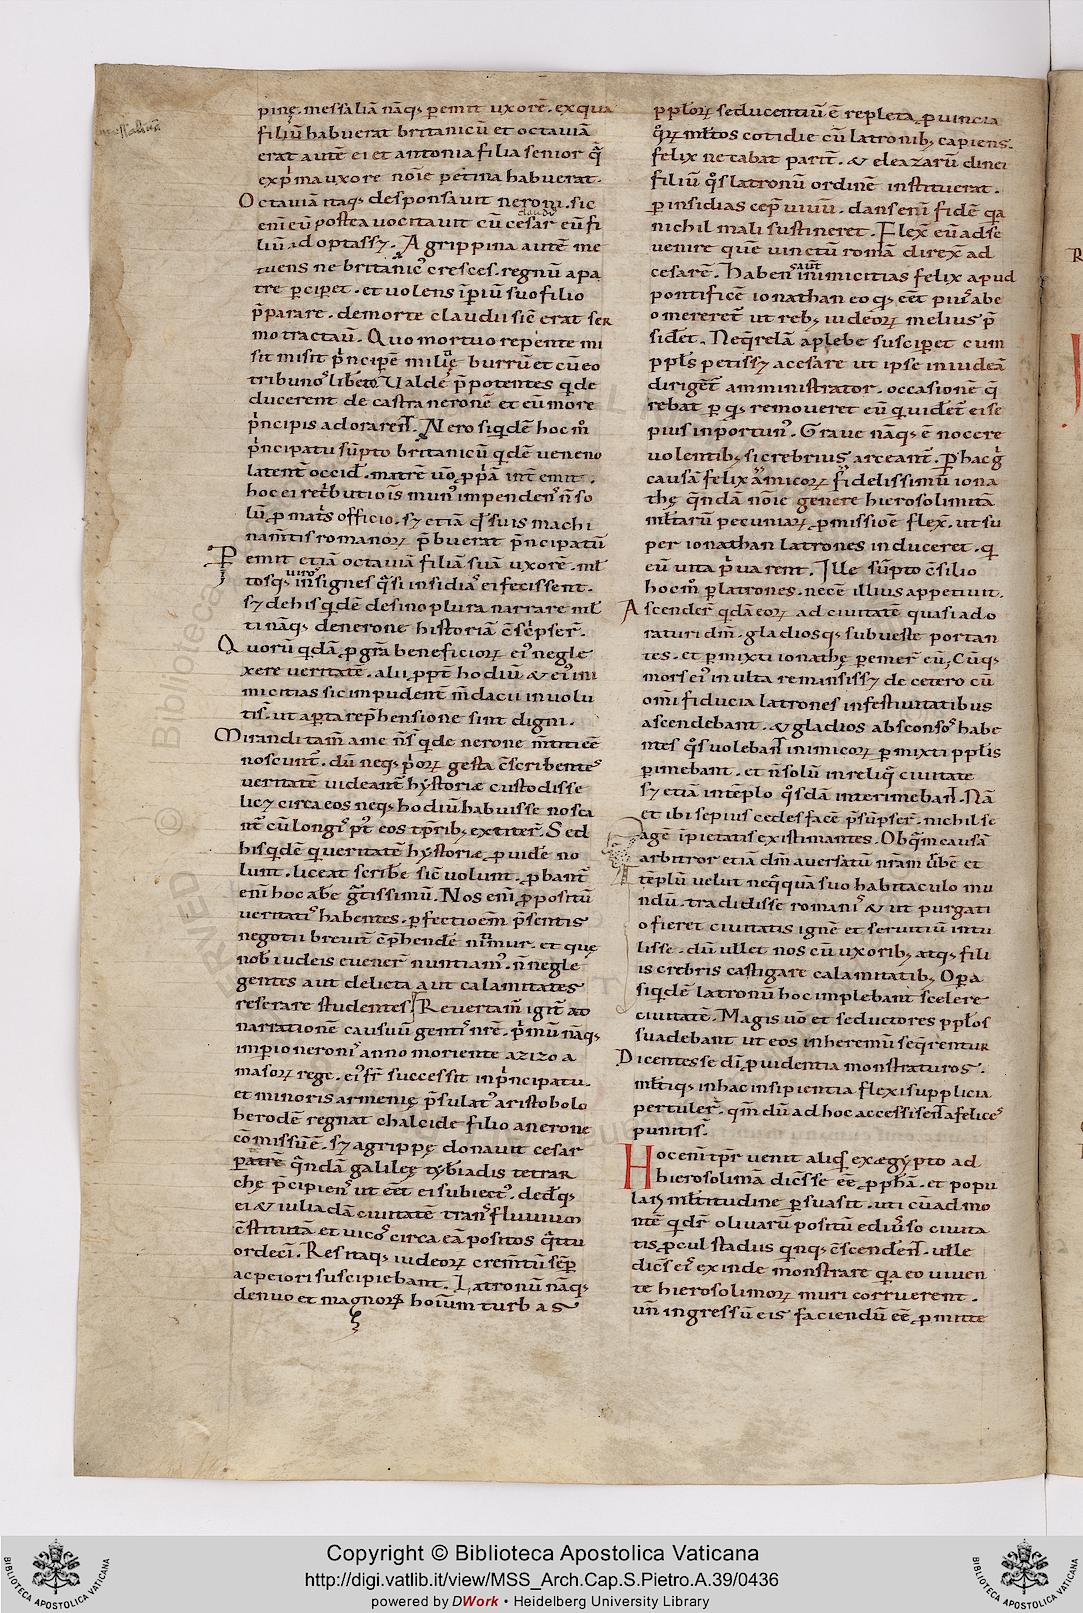 messalinā
pinę. messaliā nāq; peremit uxorē. ex qua
filiū habuerat britanicū et octauiā
erat autē ei et antonia filia senior q̄
ex p̄ma uxore noīe petina habuerat.
Octauiā itaq; desponsauit neroni. sic
claudiꝰ
enī eū postea uocitauit cū cesar eū fi
liū adoptass&. Agrippina autē me
tuens ne britanicꝰ cresces. regnū a pa
tre pcip̄et. et uolens īpiū suo filio
p̄parare. de morte claudii sic̄ erat ser
mo tractau̅. Quo mortuo repente mi
sit misit p̄ncipē militię burrū et cū eo
tribunoꝰ libertoꝰ Ualde p̄potentes q̄ de
ducerent de castra neronē et eū more
p̄ncipis adorarent̄. Nero siqdē hoc m̊
p̄ncipatu sūpto britanicū qdē ueneno
latent̄ occid̄. matrē uo ꝓp̄ā intēmit.
hoc ei ret̄butiois munꝰ impendenꝰ n̄ so
lū ꝓ mat̄s officio. s& etiā qd̄ suis machi
nam̄tis romanoꝝ p̄buerat p̄ncipatū
Pemit etiā octauiā filiā suā uxorē. ml̄
uiros
tosq; insignes q̄si insidiaꝰ ei fecissent.
s& de his qdē desino plura narrare ml̄
ti nāq; de nerone historiā c̄scripser̄.
Quorū qdā ꝓ grā beneficioꝝ eiꝰ negle
xere ueritatē. alii ꝓpt̄ hodiū & eiꝰ ini
micitias sic impudent̄ m̄daciis inuolu
tiꝰ. ut aprta rep̄hensione sint digni.
Mirandi tam̄ a me n̄ s̄ q de nerone m̄titi eē
noscunt̄. dū neq; p̄orꝝ gesta c̄scribenteꝰ
ueritatē uideant̄ hystoriæ custodisse
lic& circa eos neq; hodiū habuisse nosca
nt̄ cū longiꝰ pꝰt eos tp̄rib; extiter̄. Sed
his qdē q ueritatē hystoriæ ꝓuidē no
lunt. liceat scribē sic̄ uolunt. ꝓbant̄
enī hoc abē grātissimū. Nos enī ꝓpositū
ueritatiꝰ habentes. pfectioēm p̄sentis
negotii breuit̄ c̄p̄hendē nitimur. et quę
nob̄ iudeis euener̄ nuntiamꝰ. n̄ negle
gentes aut delicta aut calamitates
reserare studentes. Reuertam̄ igit̄ ad
narrationē causuū gentiꝰ nrē. p̄mū nāq;
imperio neroniꝰ anno moriente azizo a
masorꝝ rege. eiꝰ fr̄ successit in p̄ncipatu.
et minoris armenię p̄sulatꝰ aristobolo
herodē regnat chalcide filio a nerone
cōmissūē. s& agrippę donauit cesar
patrē q̄ndā galileę tyb̄iadis tetrar
chę p̄cipienꝰ ut eēt ei subiectꝰ. dedq;
ei & iuliadā ciuitatē tranꝰ fluuium
c̄stitutā et uicoꝰ circa ea positos q̄ttu
ordeci. Res itaq; iudeorꝝ crem̄tū sēp
ac peiori suscipiebant. Latronū nāq;
denuo et magnorꝝ hoium turbas
pp̄lorꝝ seducentiū ē repleta ꝓuincia
q̄rꝝ ml̄tos cotidie cū latronib; capiens.
felix necabat parit̄. & eleazarū dinei
filiū q̊s latronū ordinē instituerat.
p insidias cep̄ uiuū. dans enī fidē qa
nichil mali sustineret. Flex̄ eū ad se
uenire quē uinctū romā direx̄ ad
cesarē. Haben̄ aut̄ inimicitias felix apud
pontificē ionathan eo qd̄ eēt piuꝰ ab e
o mereret̄ ut reb; iudeorꝝ melius p̄
sidēt. Ne q̄relā a plebe suscip̄et cum
pp̄ls petiss& accesare ut ipse in iudeā
dirigēt̄ amministrator. occasionē q̄
rebat p qd̄ remoueret eū q uidēt̄ ei se
pius inportunꝰ. Graue nāq; ē nocere
uolentib; si crebrius arceant̄. Per hac g̊
causā felix amicorꝝ fidelissimū iona
thę q̄ndā noīe genere hierosolimitā
ml̄tarū pecuniarꝝ ꝓmissioē flex̄. ut su
per ionathan latrones induceret. q
eū uita p̄uarent. Ille sūpto c̄silio
hoc m̊ p latrones. necē illius appetiuit.
Ascender̄ qdā eorꝝ ad ciuitatē quasi ado
raturi dm̄. gladiosq; sub ueste portan
tes. et pmixti ionathę pemer̄ eū. Cūq;
mors eiꝰ inulta remansiss& de cetero cū
om̄i fiducia latrones in festiuitatibus
ascendebant. & gladios absconsoꝰ habe
ntes q̊s uolebant̄ inimicorꝝ pmixti pp̄lis
pimebant. et n̄ solū in reliq̄ ciuitate
s& etiā in tēplo q̊sdā interimebant̄. Nā
et ibi sepius cedes facē p̄sūpser̄. nichil se
agē īpietatis existimantes. Ob q̄m causā
arbitror etiā dm̄ auersatū nr̄am urbē et
tēplū uelut neq̄quā suo habitaculo mu
ndū. tradidisse romaniꝰ & ut purgati
o fieret ciuitatis ignē et seruitiū intu
lisse. dū uellet nos cū uxorib; atq; fili
is crebris castigare calamitatib; Opera
siqdē latronū hoc implebant scelere
ciuitatē. Magis uo et seductores pp̄los
suadebant ut eos in heremū seq̄rentur
Dicentes se di ꝓuidentia monstraturos.
ml̄tiq; in hac insipientia flexi supplicia
pertuler̄. qm̄ dū ad hoc accessisent̄ a feliceꝰ
punitis̄.
Hoc enī tpr̄ uenit aliqs ex ægypto ad
hierosolimā dicēs se eē ꝓphā. et popu
laris ml̄titudine psuasit. uti cū ad mo
ntē qder̄ oliuarū positū ediuerso ciuita
tis ꝓcul stadiis qnq; c̄scenderent̄. uelle
dicēs eiꝰ exinde monstrare qa eo iuuen
te hierosolimorꝝ muri corruerent.
un̄ ingressū eis faciendū eē ꝓmitte
Copyright © Biblioteca Apostolica Vaticana
http://digi.vatlib.it/view/MSS_Arch.Cap.S.Pietro.A.39/0436
powered by DWork • Heidelberg University Library